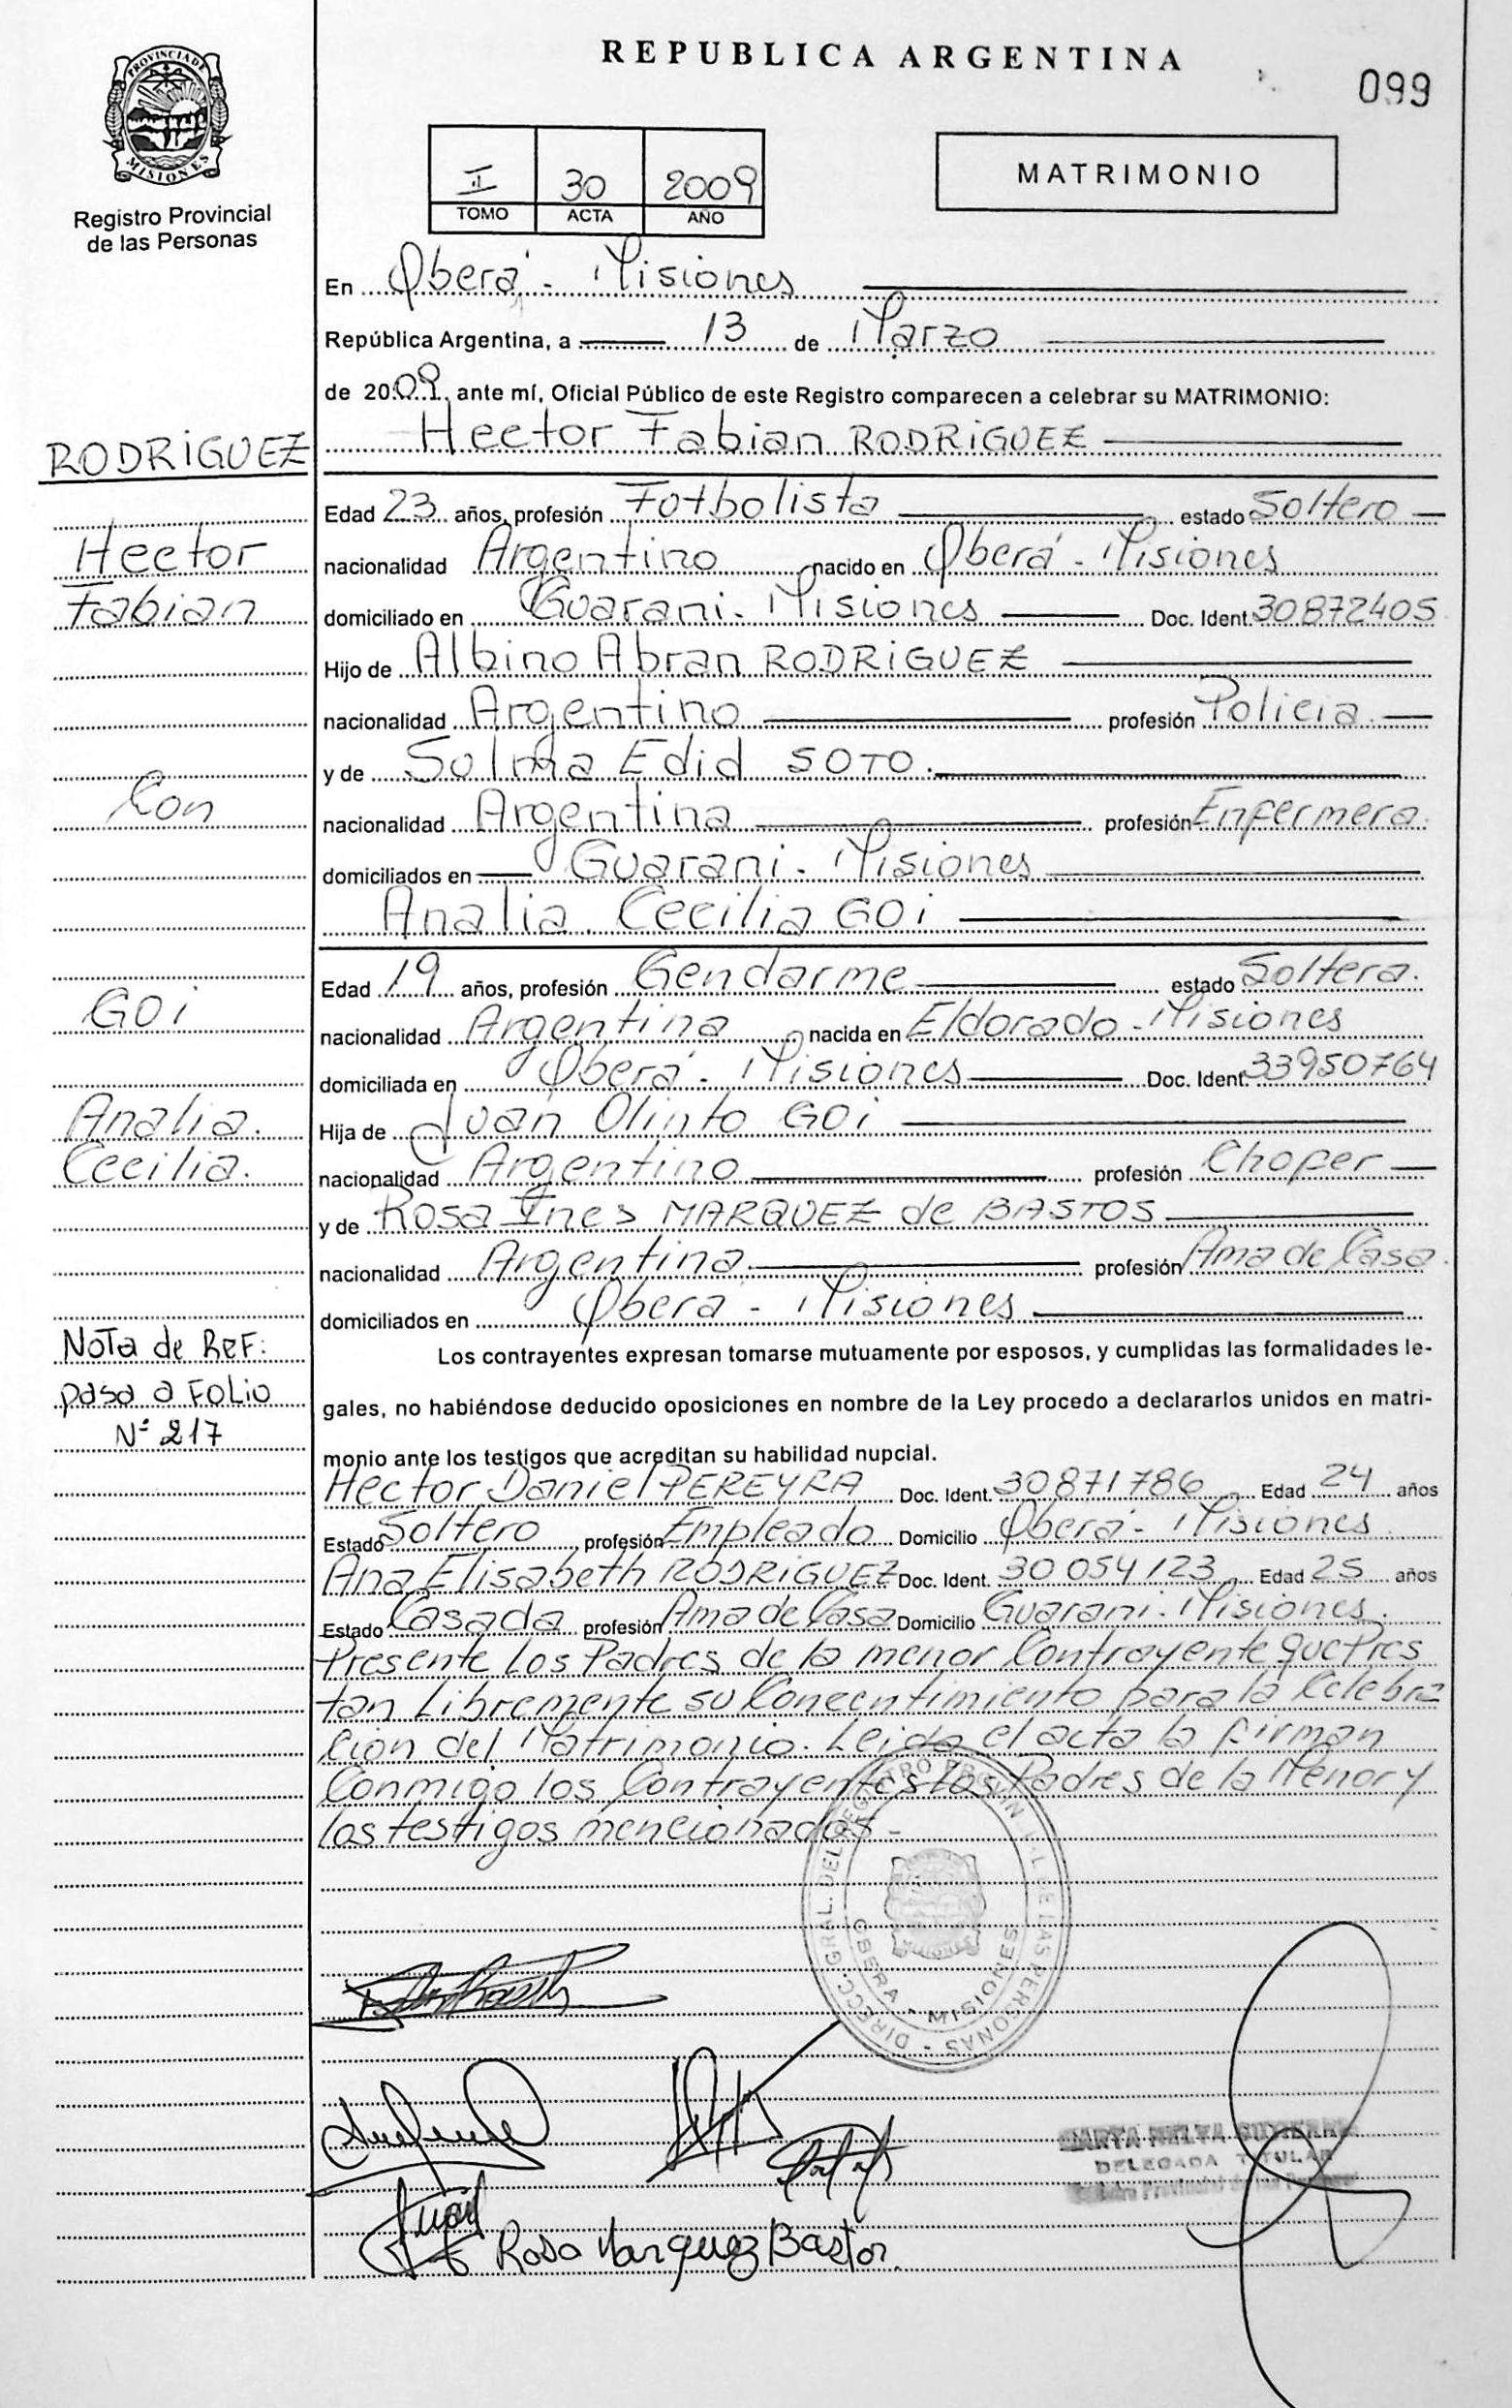 REPUBLICA ARGENTINA
099
PROVINCIA DE MISIONES
Registro Provincial
de las Personas
II 30 2009
TOMO ACTA AÑO
MATRIMONIO
En Oberá - Misiones
República Argentina, a 13 de Marzo
de 2009, ante mí, Oficial Público de este Registro comparecen a celebrar su MATRIMONIO:
Hector Fabian RODRIGUEZ
RODRIGUEZ
Edad 23 años, profesión Fotbolista estado Soltero
Hector
nacionalidad Argentino nacido en Oberá - Misiones
Fabian
domiciliado en Guarani - Misiones Doc. Ident. 30872405
Hijo de Albino Abran RODRIGUEZ
nacionalidad Argentino profesión Policia.
y de Sulma Edid SOTO.
Con
nacionalidad Argentina profesión Enfermera.
domiciliados en Guarani - Misiones
Analia Cecilia GOi
Edad 19 años, profesión Gendarme estado Soltera.
GOi
nacionalidad Argentina nacida en Eldorado - Misiones
domiciliada en Oberá - Misiones Doc. Ident. 33950764
Analia.
Hija de Juan Olinto GOi
Cecilia.
nacionalidad Argentino profesión Chofer
y de Rosa Ines MARQUEZ de BASTOS
nacionalidad Argentina profesión Ama de Casa.
domiciliados en Oberá - Misiones
Nota de Ref:
pasa a Folio
Nº 217
Los contrayentes expresan tomarse mutuamente por esposos, y cumplidas las formalidades le-
gales, no habiéndose deducido oposiciones en nombre de la Ley procedo a declararlos unidos en matri-
monio ante los testigos que acreditan su habilidad nupcial.
Hector Daniel PEREYRA Doc. Ident. 30871786 Edad 24 años
Estado Soltero profesión Empleado Domicilio Oberá - Misiones
Ana Elisabeth RODRIGUEZ Doc. Ident. 30 054 123 Edad 25 años
Estado Casada profesión Ama de Casa Domicilio Guarani - Misiones.
Presente Los Padres de la menor Contrayente que Pres
tan Libremente su Concentimiento para la Celebra
cion del Matrimonio. Leida el acta la firman
Conmigo los Contrayentes Los Padres de la Menor y
los testigos mencionados -
DIRECC. GRAL. DEL REGISTRO PROVINCIAL DE LAS PERSONAS
OBERA - MISIONES
DELEGADA TITULAR
Rosa Marquez Bastos.